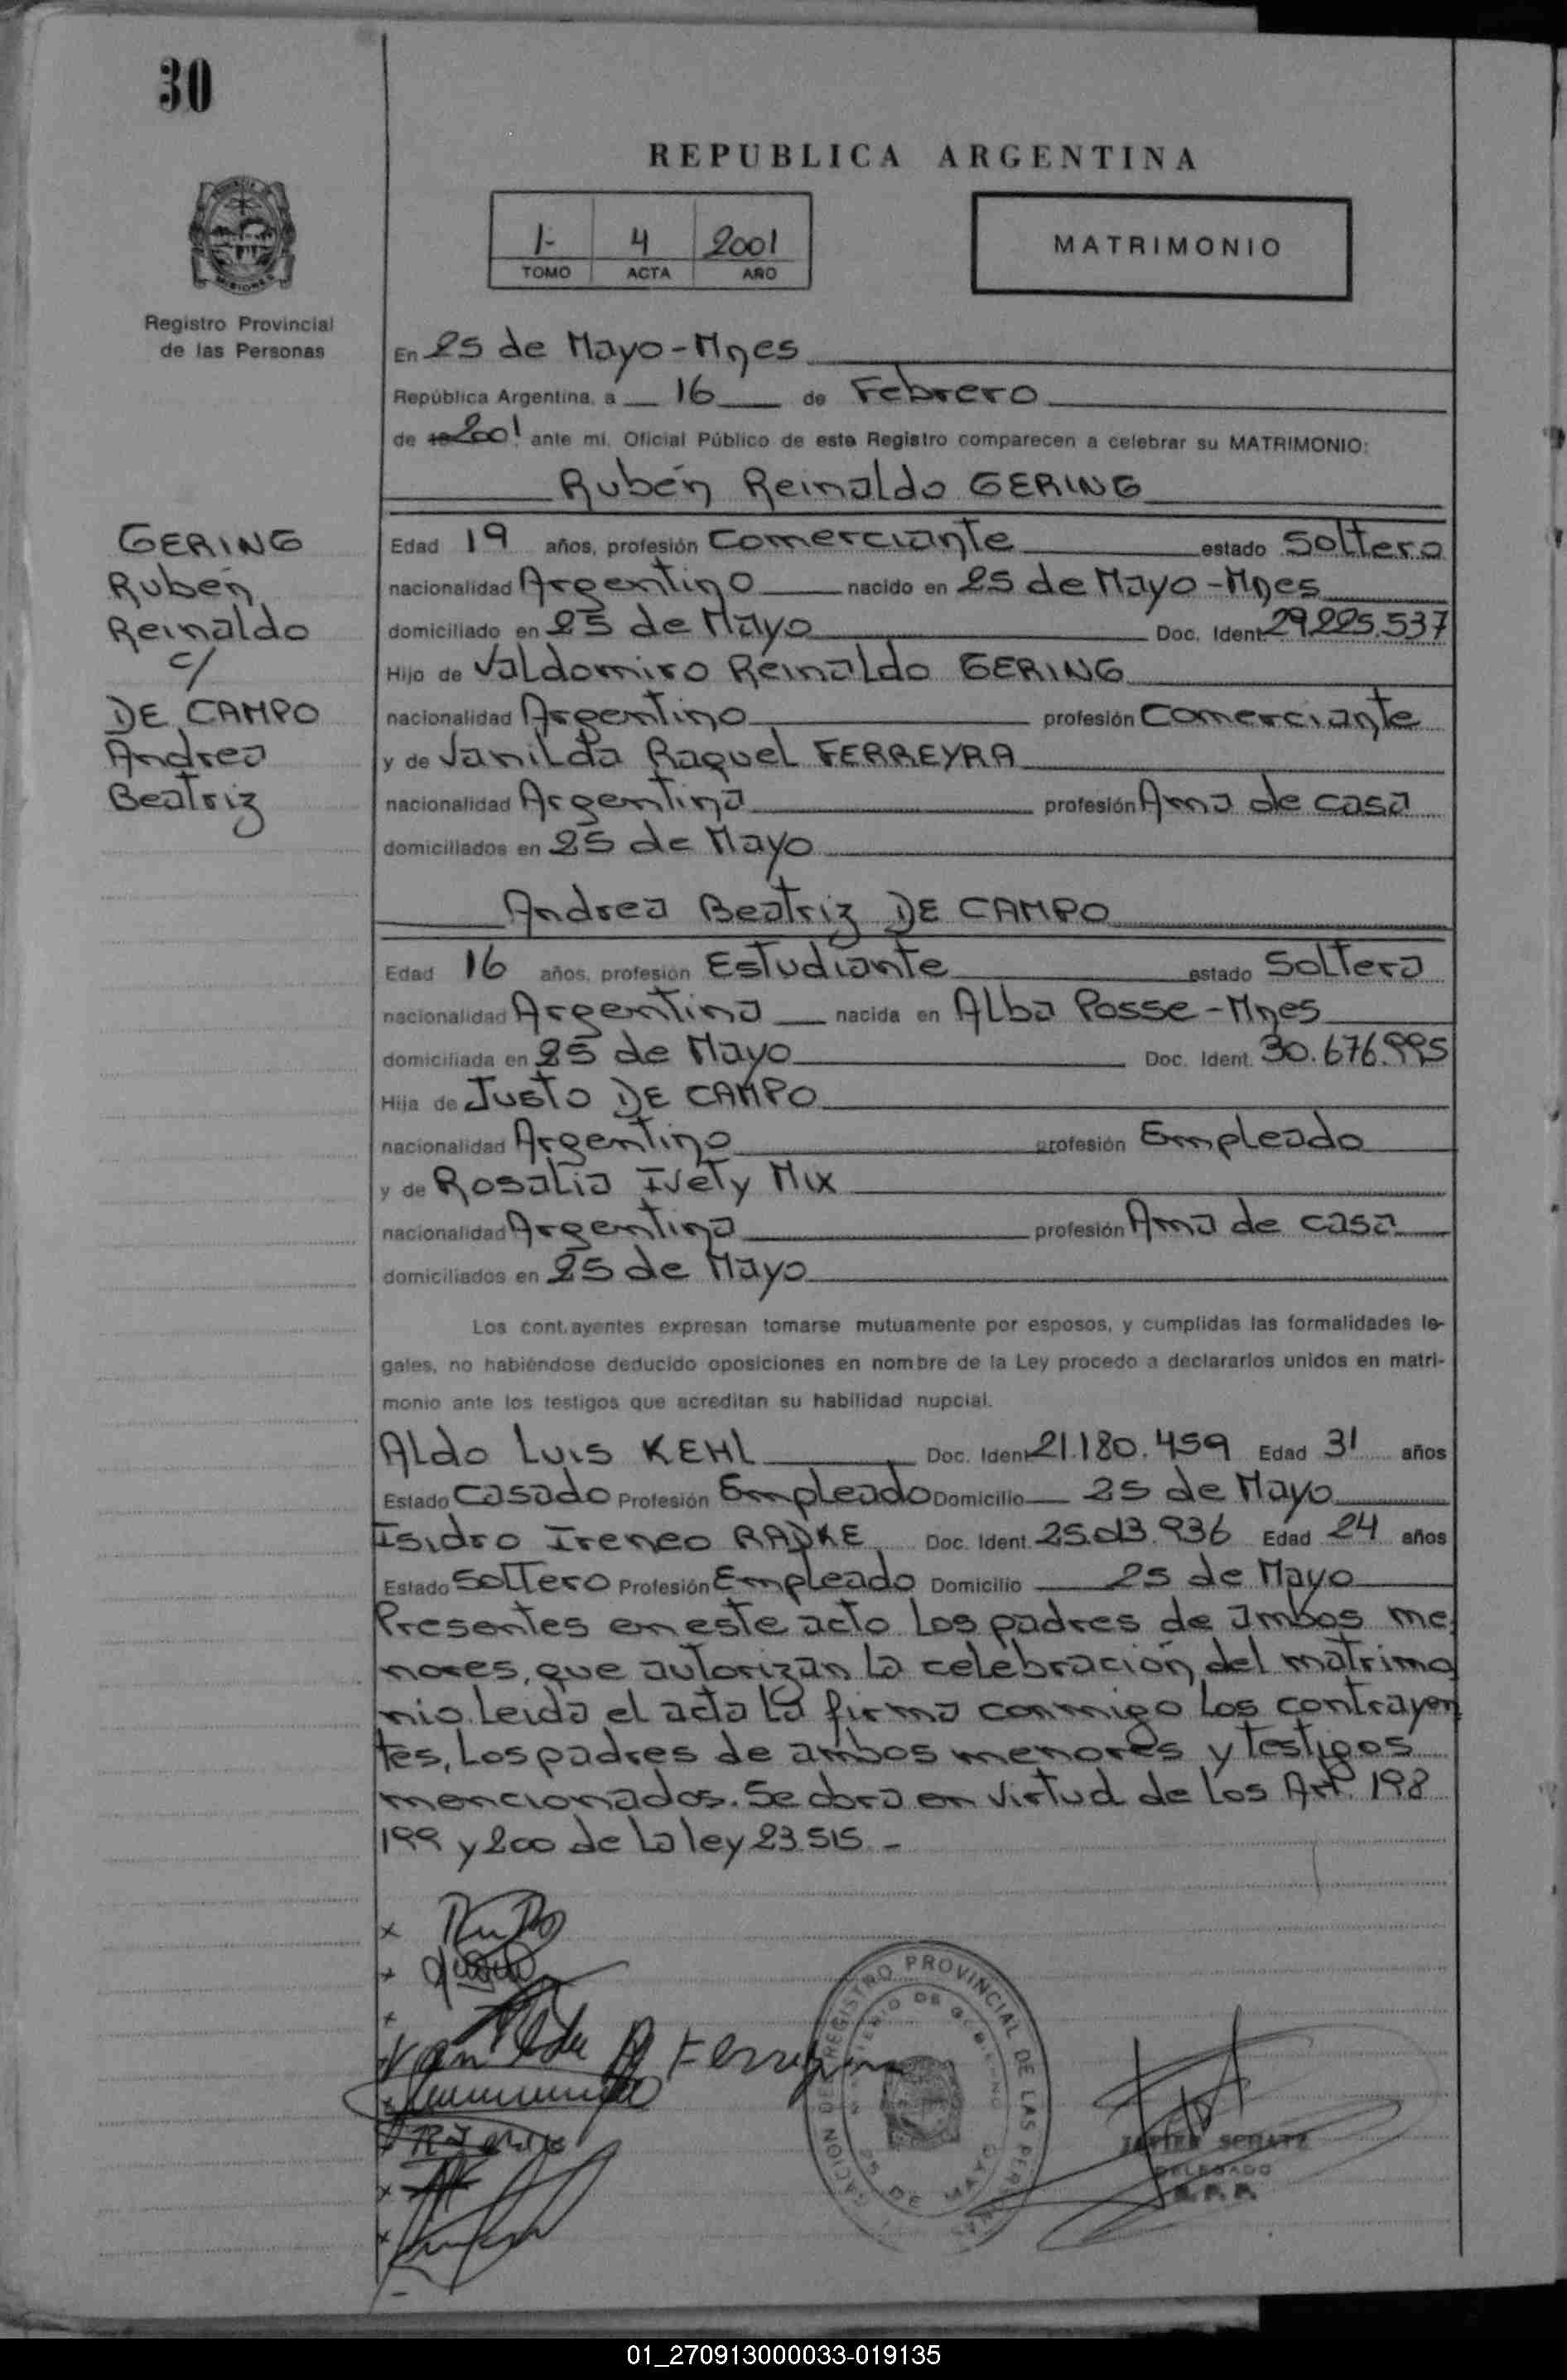 30
REPUBLICA ARGENTINA
1- 4 2001
TOMO ACTA AÑO
MATRIMONIO
MISIONES
Registro Provincial
de las Personas
En 25 de Mayo-Mnes
República Argentina, a 16 de Febrero
de 2001 ante mi, Oficial Público de este Registro comparecen a celebrar su MATRIMONIO:
Rubén Reinaldo GERING
GERING
Rubén
Reinaldo
c/
DE CAMPO
Andrea
Beatriz
Edad 19 años, profesión Comerciante estado Soltero
nacionalidad Argentino nacido en 25 de Mayo-Mnes
domiciliado en 25 de Mayo Doc. Ident. 29.225.537
Hijo de Valdomiro Reinaldo GERING
nacionalidad Argentino profesión Comerciante
y de Vanilda Raquel FERREYRA
nacionalidad Argentina profesión Ama de casa
domiciliados en 25 de Mayo
Andrea Beatriz DE CAMPO
Edad 16 años, profesión Estudiante estado Soltera
nacionalidad Argentina nacida en Alba Posse-Mnes
domiciliada en 25 de Mayo Doc. Ident. 30.676.995
Hija de Justo DE CAMPO
nacionalidad Argentino profesión Empleado
y de Rosalia Ivety Mix
nacionalidad Argentina profesión Ama de casa
domiciliados en 25 de Mayo
Los contrayentes expresan tomarse mutuamente por esposos, y cumplidas las formalidades le-
gales, no habiéndose deducido oposiciones en nombre de la Ley procedo a declararlos unidos en matri-
monio ante los testigos que acreditan su habilidad nupcial.
Aldo Luis KEHL Doc. Ident. 21.180.459 Edad 31 años
Estado Casado Profesión Empleado Domicilio 25 de Mayo
Isidro Ireneo RADKE Doc. Ident. 25.013.936 Edad 24 años
Estado Soltero Profesión Empleado Domicilio 25 de Mayo
Presentes en este acto los padres de ambos me-
nores, que autorizan la celebración del matrimo
nio. Leida el acta la firma conmigo los contrayen
tes, Los padres de ambos menores y testigos
mencionados. Se obra en virtud de los Art. 198
199 y 200 de la ley 23.515.-
REGISTRO PROVINCIAL DE LAS PERSONAS
MINISTERIO DE GOBIERNO
25 DE MAYO
Vanilda R Ferreyra
JAVIER SCHATZ
DELEGADO
R. P. P.
01_270913000033-019135